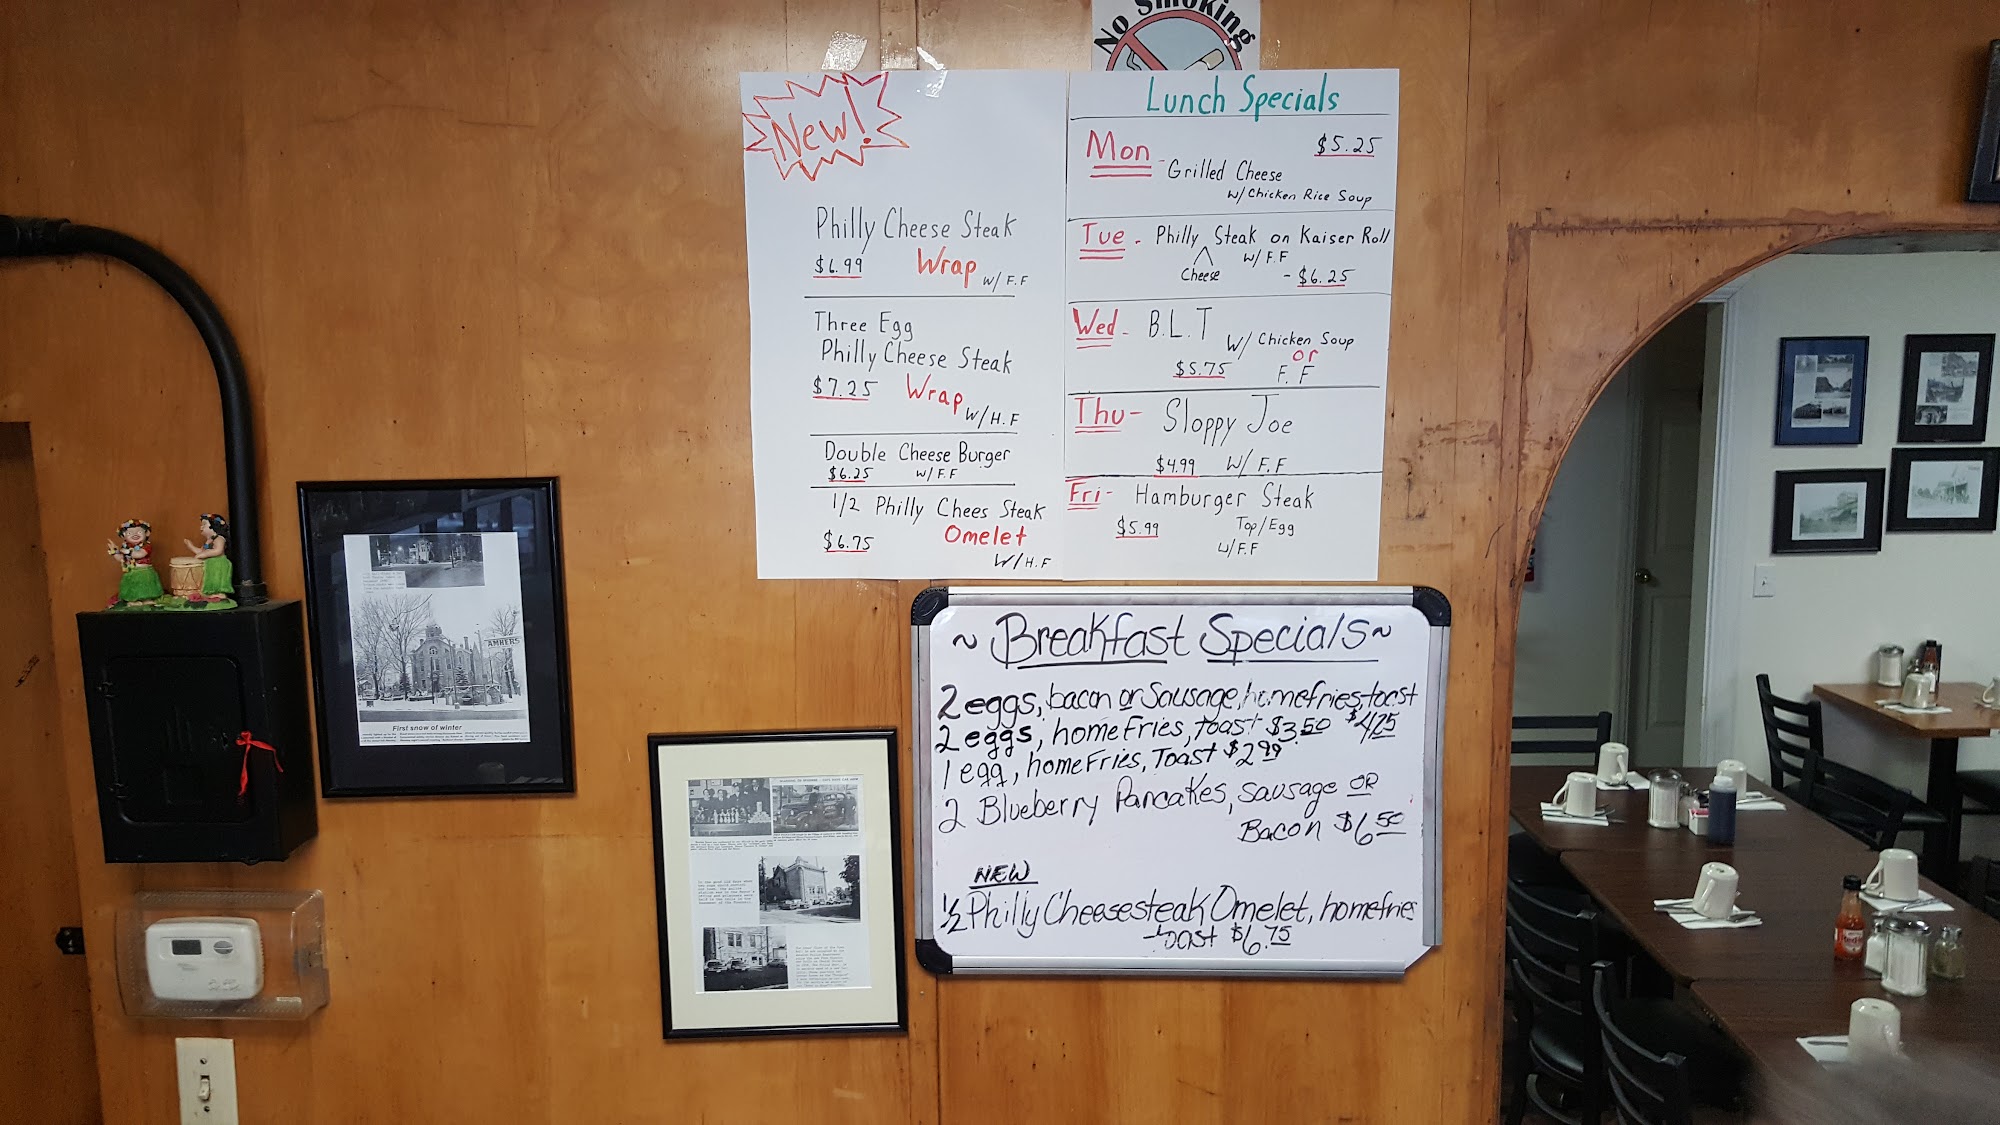 No Smoking
New!
Philly Cheese Steak
$6.99 Wrap w/ F.F
Three Egg
Philly Cheese Steak
$7.25 Wrap w/ H.F
Double Cheese Burger
$6.25 w/ F.F
1/2 Philly Chees Steak
$6.75 Omelet
w/ H.F
Lunch Specials
Mon - $5.25
Grilled Cheese
w/ Chicken Rice Soup
Tue - Philly Steak on Kaiser Roll
Cheese w/ F.F
- $6.25
Wed - B.L.T w/ Chicken Soup
or
$5.75 F.F
Thu - Sloppy Joe
$4.99 w/ F.F
Fri - Hamburger Steak
$5.99 Top/Egg
w/ F.F
~ Breakfast Specials ~
2 eggs, bacon or Sausage, homefries, toast
$4.75
2 eggs, home Fries, toast $3.50
1 egg, home Fries, Toast $2.99
2 Blueberry Pancakes, sausage OR
Bacon $6.50
NEW
1/2 Philly Cheesesteak Omelet, homefries
toast $6.75
AMHERS
First snow of winter